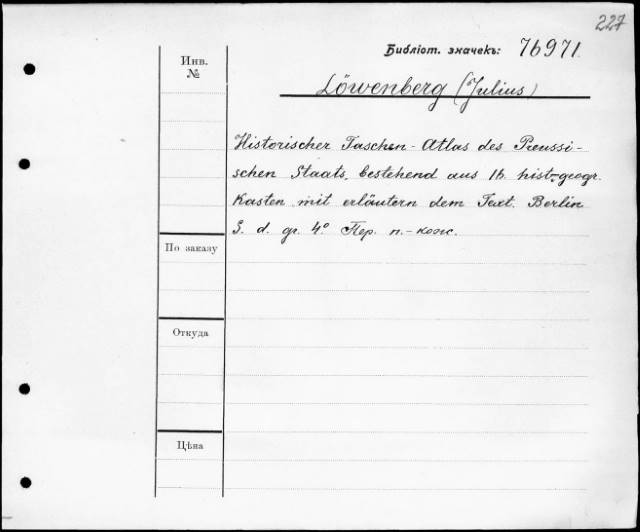 227
Библіот. значекъ: 76971
Löwenberg (Julius)
Инв.
№
Historischer Taschen-Atlas des Preussi-
schen Staats, bestehend aus 16 hist.-geogr.
Kasten mit erläutern dem Text. Berlin
S. d. gr. 4° Пер. п.-кож.
По заказу
Откуда
Цѣна